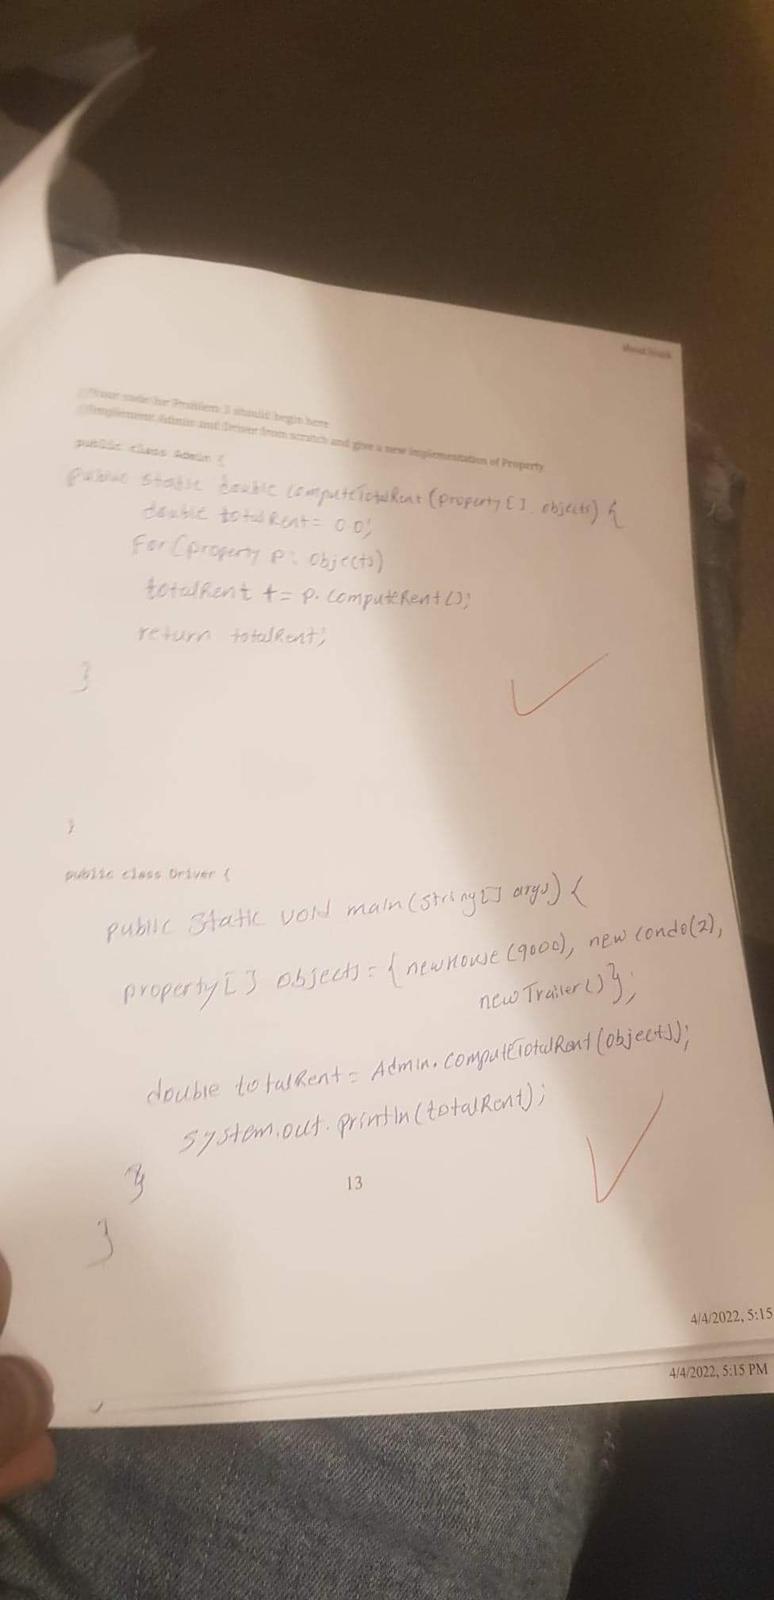 //Your code for Problem 3 should begin here
//Implement Admin and Driver from scratch and give a new implementation of Property
public class Admin {
public static double computeTotalRent (property [] objects) {
double totalRent = 0.0;
For (property p: objects)
totalRent += p. computeRent ();
return totalRent;
}
}
public class Driver {
public static void main (string [] args) {
property [] objects = { new House (9000), new condo(2),
new Trailer () };
double totalRent = Admin. computeTotalRent (objects);
system.out. println (totalRent);
}
13
}
4/4/2022, 5:15
4/4/2022, 5:15 PM